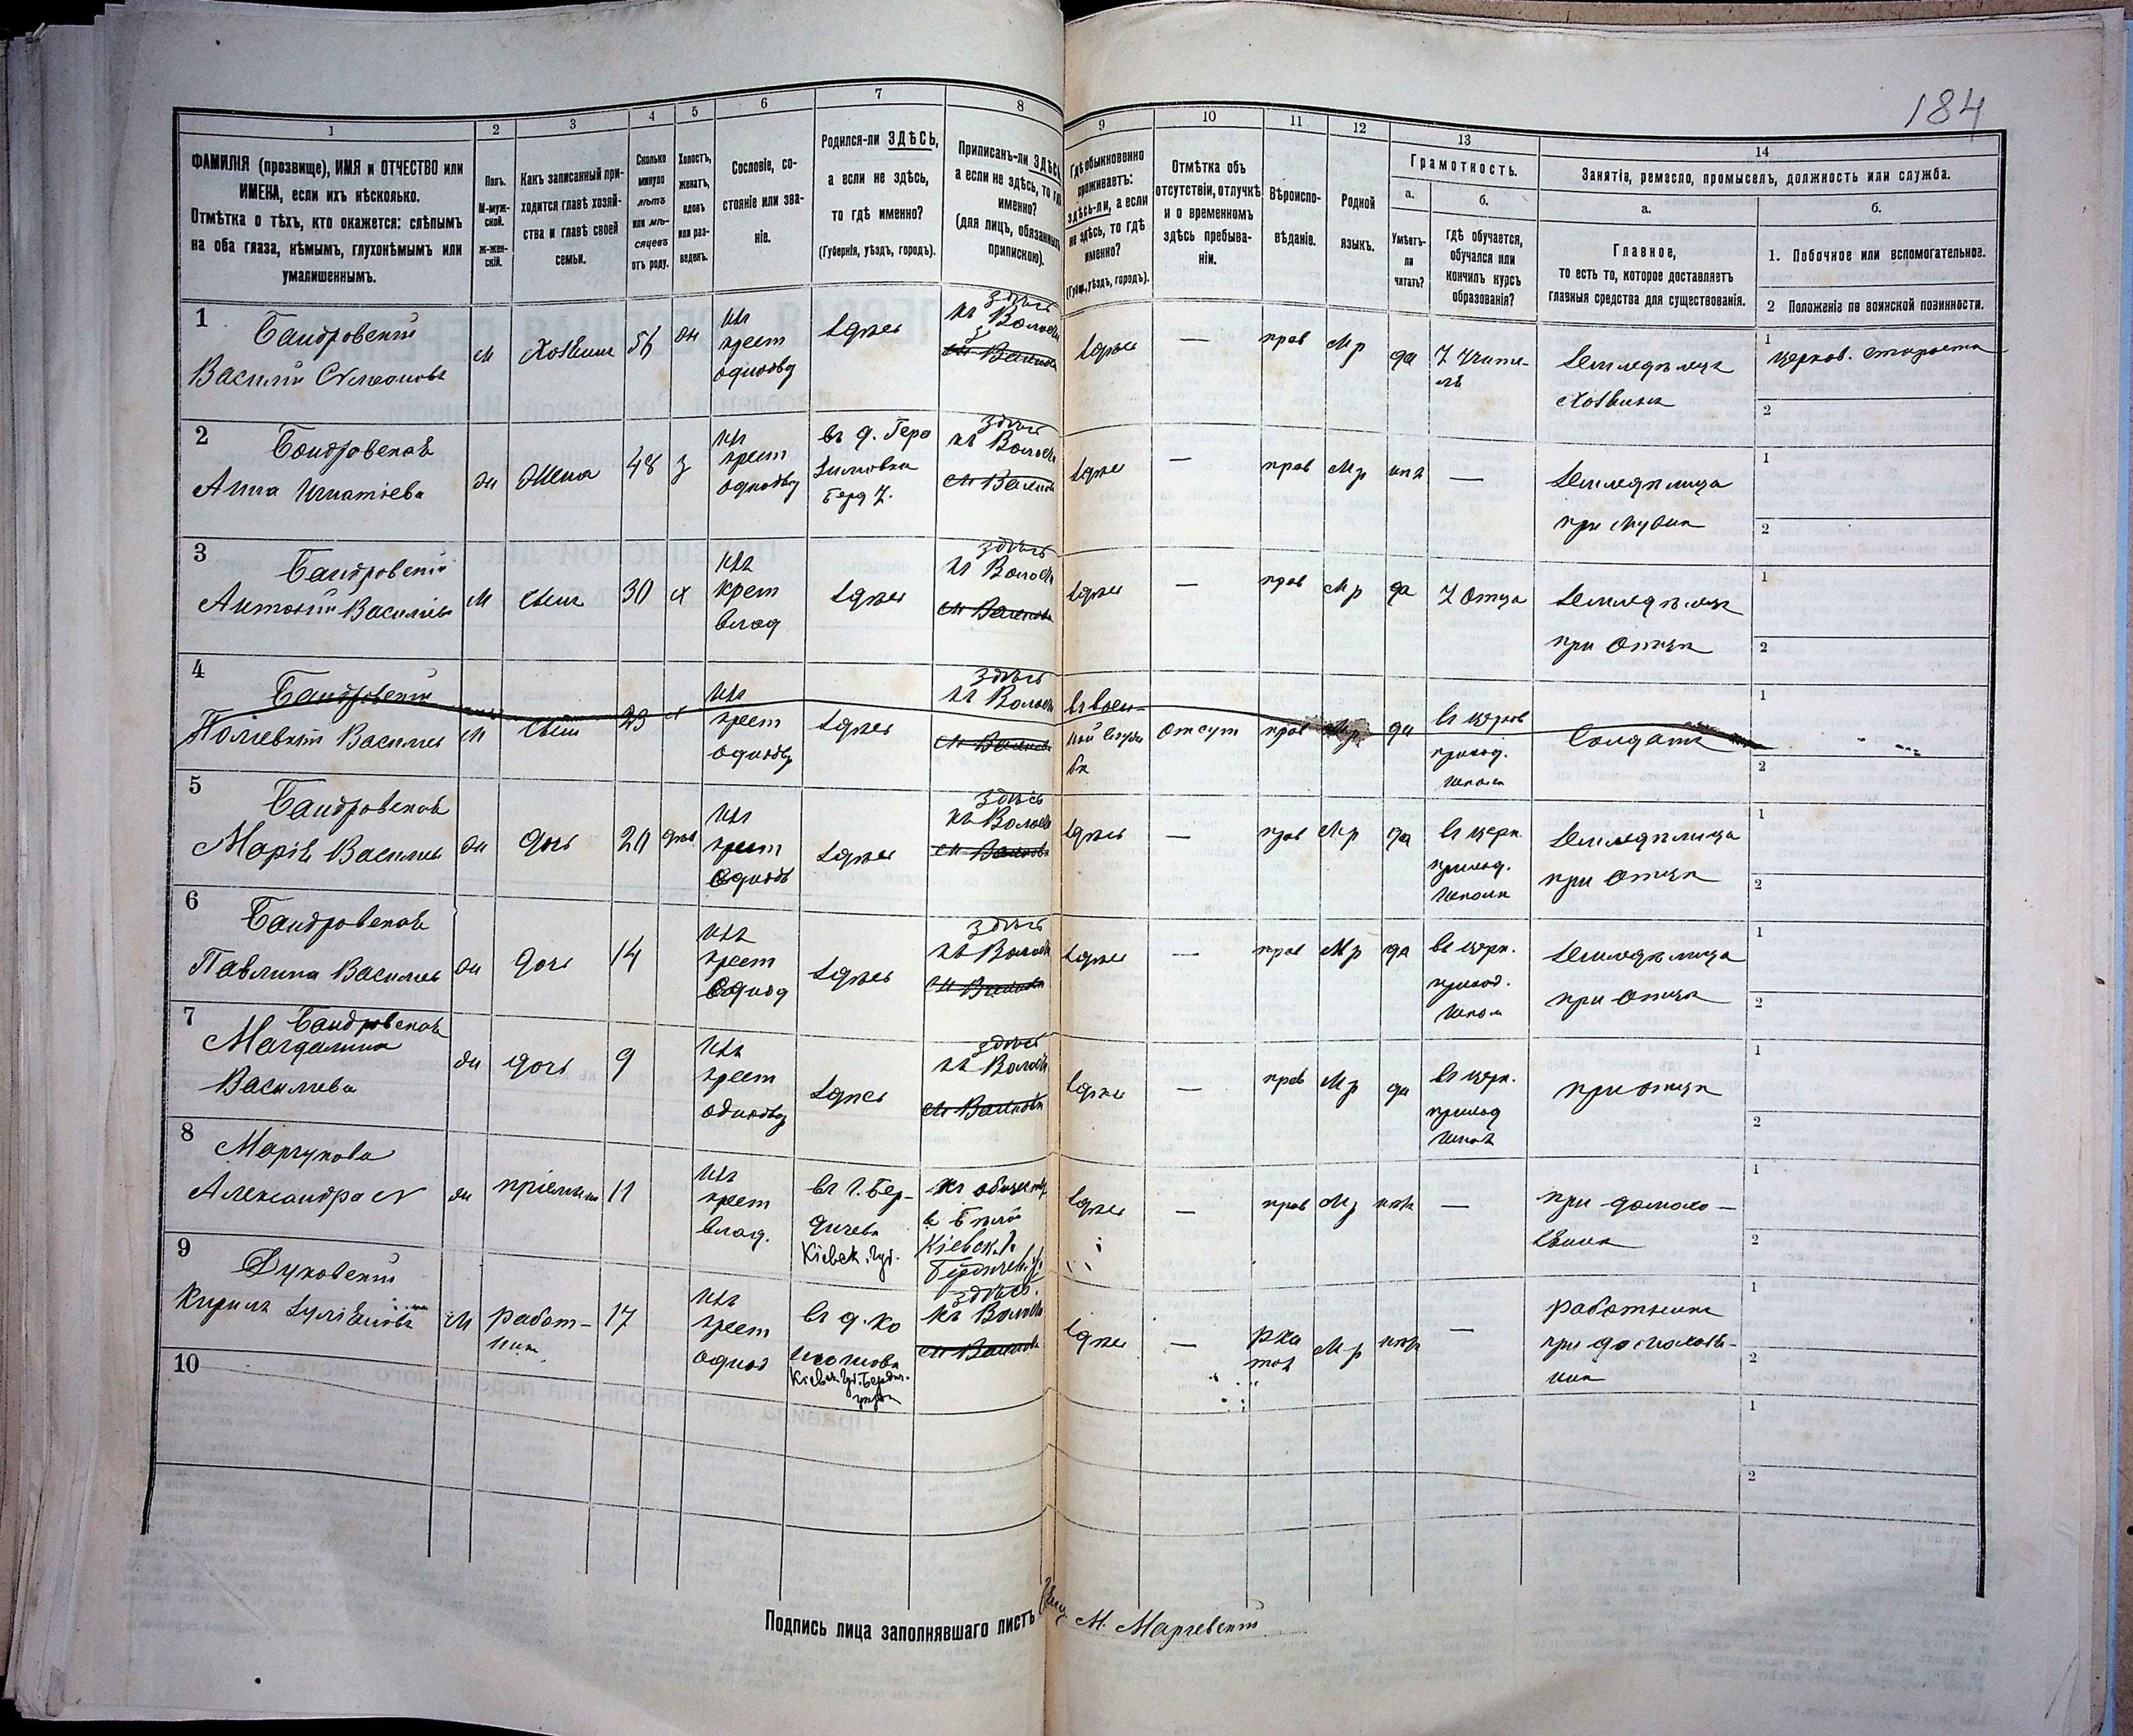 184
1
2
3
4
5
6
7
8
9
10
11
12
13
14
ФАМИЛІЯ (прозвище), ИМЯ и ОТЧЕСТВО или
ИМЕНА, если ихъ нѣсколько.
Отмѣтка о тѣхъ, кто окажется: слѣпымъ
на оба глаза, нѣмымъ, глухонѣмымъ или
умалишеннымъ.
Полъ.
М-муж-
ской.
Ж-жен-
скій.
Какъ записанный при-
ходится главѣ хозяй-
ства и главѣ своей
семьи.
Сколько
минуло
лѣтъ
или мѣ-
сяцевъ
отъ роду.
Холостъ,
женатъ,
вдовъ
или раз-
веденъ.
Сословіе, со-
стояніе или зва-
ніе.
Родился-ли ЗДѢСЬ,
а если не здѣсь,
то гдѣ именно?
(Губернія, уѣздъ, городъ).
Приписанъ-ли ЗДѢСЬ
а если не здѣсь, то гдѣ
именно?
(для лицъ, обязанныхъ
припискою).
Гдѣ обыкновенно
проживаетъ:
здѣсь-ли, а если
не здѣсь, то гдѣ
именно?
(Губ., уѣздъ, городъ).
Отмѣтка объ
отсутствіи, отлучкѣ
и о временномъ
здѣсь пребыва-
ніи.
Вѣроиспо-
вѣданіе.
Родной
языкъ.
Грамотность.
а.
Умѣетъ-
ли
читать?
б.
Гдѣ обучается,
обучался или
кончилъ курсъ
образованія?
Занятіе, ремесло, промыселъ, должность или служба.
а.
Главное,
то есть то, которое доставляетъ
главныя средства для существованія.
б.
1. Побочное или вспомогательное.
2 Положеніе по воинской повинности.
1
Бандровскій
Василій
м
Хозяинъ
56
жн
изъ
крест
однодв
здѣсь
здѣсь
къ Волости
здѣсь
—
прав
мр
да
У Учите-
ля
Земледѣлецъ
Хозяинъ
1
церков. староста
2
2
Бандровская
Анна Игнатіева
ж
жена
48
з
изъ
крест
однодв
въ д. Гера
симовка
Берд У.
здѣсь
къ Волости
здѣсь
—
прав
мр
нѣтъ
—
Земледѣлица
при мужѣ
1
2
3
Бандровскій
Антоній Василіев
м
сынъ
30
х
изъ
крест
влад
здѣсь
здѣсь
къ Волости
здѣсь
—
прав
мр
да
У Отца
Земледѣлецъ
при Отцѣ
1
2
4
Бандровскій
Поліевктъ Василіев
м
сынъ
23
х
изъ
крест
однодв
здѣсь
здѣсь
къ Волости
въ воен-
ной служ
бѣ
отсут
прав
мр
да
въ церков
приход.
школѣ
Солдатъ
1
2
5
Бандровская
Марія Василіев
ж
дочь
20
дѣв
изъ
крест
однодв
здѣсь
здѣсь
къ Волости
здѣсь
—
прав
мр
да
въ церк.
приход.
школѣ
Земледѣлица
при Отцѣ
1
2
6
Бандровская
Павлина Василіев
ж
дочь
14
изъ
крест
однод
здѣсь
здѣсь
къ Волости
здѣсь
—
прав
мр
да
въ церк.
приход.
школ
Земледѣлица
при Отцѣ
1
2
7
Бандровская
Магдалина
Василіева
ж
дочь
9
изъ
крест
однодв
здѣсь
здѣсь
къ Волости
здѣсь
—
прав
мр
да
въ церк.
приход
школѣ
при отцѣ
1
2
8
Александра N
ж
пріемыш
11
изъ
крест
влад.
въ г. Бер-
дичевѣ
Кіевск. губ.
здѣсь
—
прав
мр
нѣтъ
—
при домохо-
зяинѣ
1
2
9
Кирилъ
м
работ-
никъ
17
изъ
крест
однод
въ д. Ко
Кіевск. губ. Бердич.
уѣзда
здѣсь
къ Волости
здѣсь
—
рка
тол
мр
нѣтъ
—
работникъ
при домохозя-
инѣ
1
2
10
1
2
Подпись лица заполнявшаго листъ